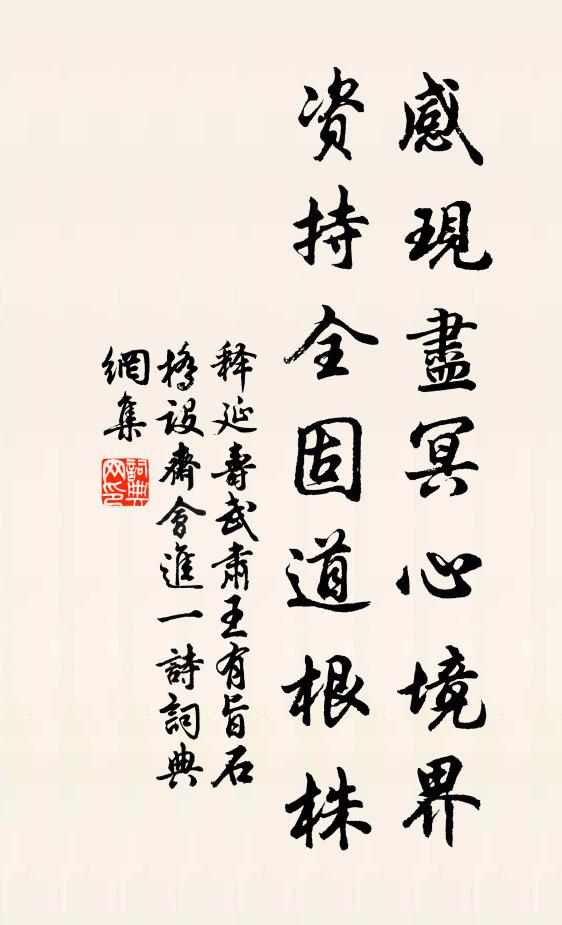 感現盡冥心境界
资持全固道根株
释延壽武肅王有旨石
橋设齋會進一詩詞典
網集
詞典网印